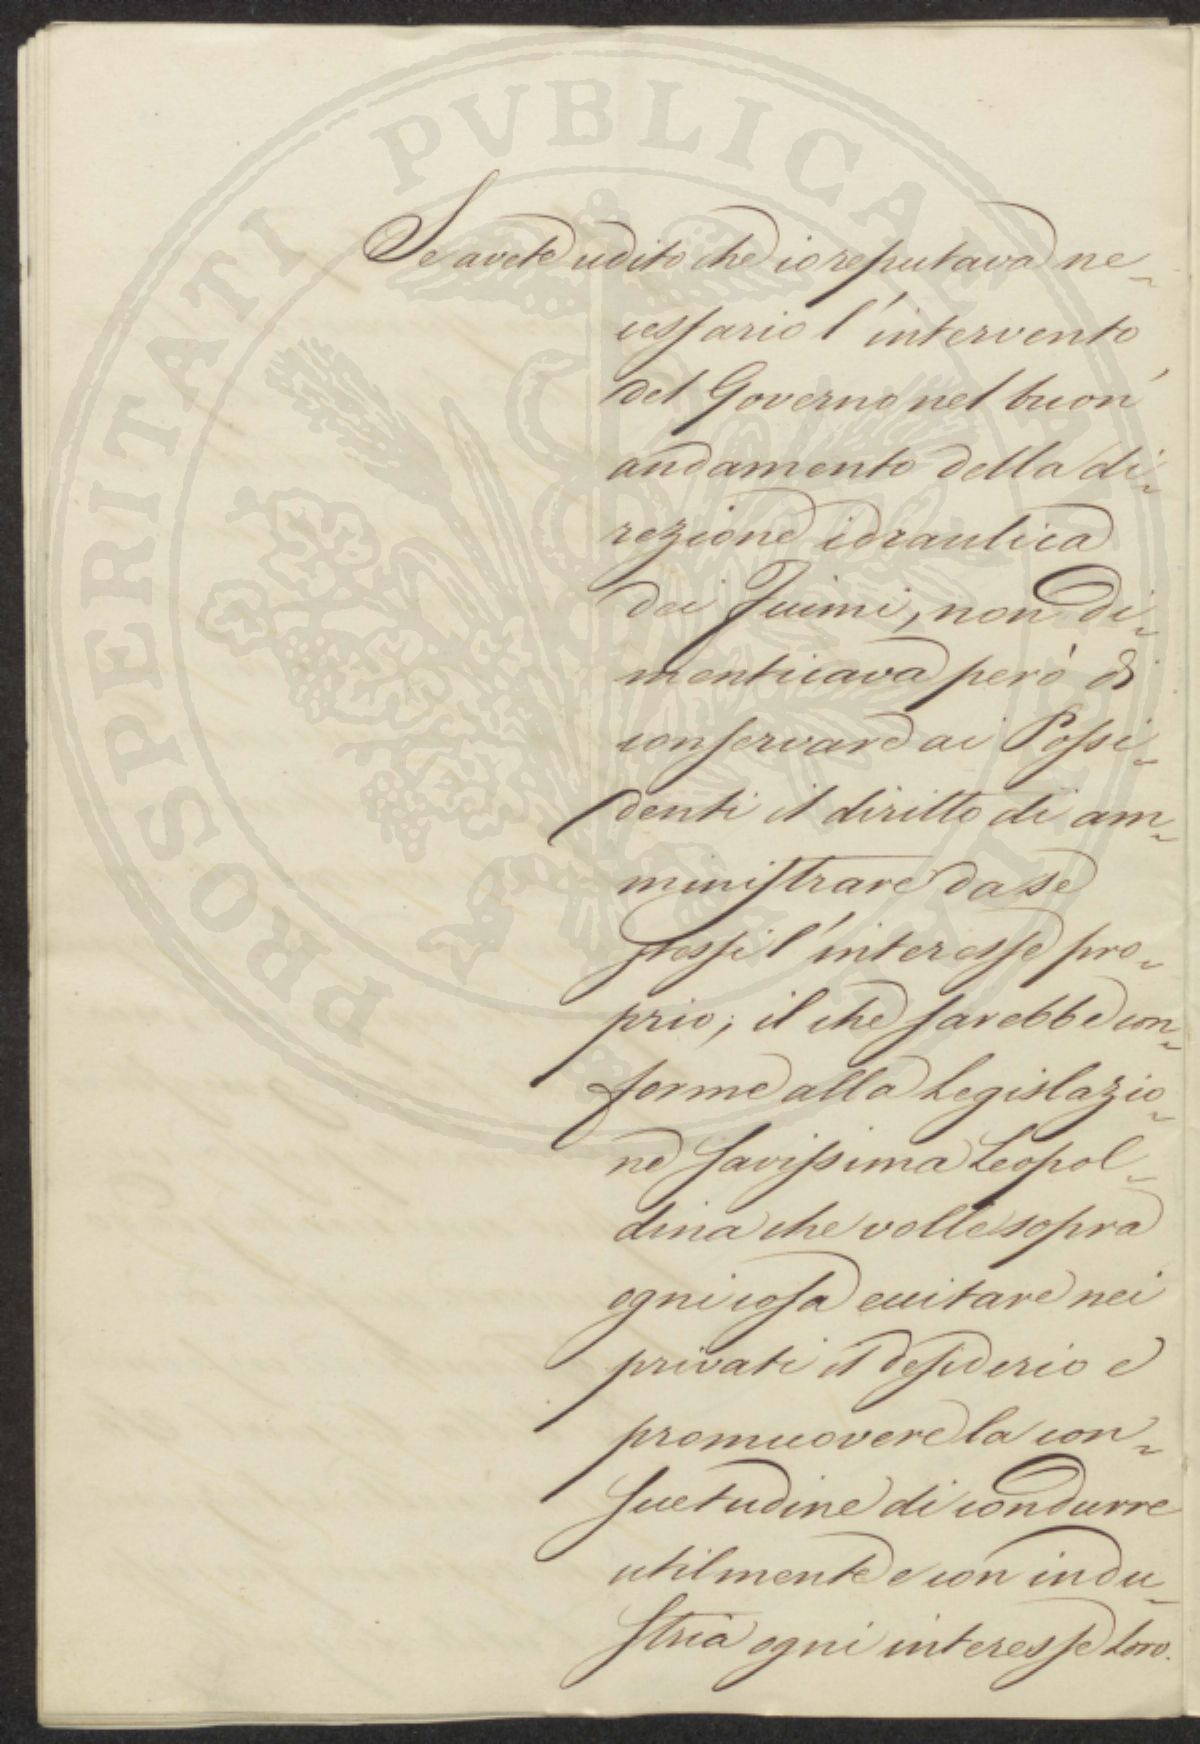 PROSPERITATI PUBLICAE AUGENDAE
Se avete udito che io reputava ne-
cessario l'intervento
del Governo nel buon'
andamento della di-
rezione idraulica
dei Fiumi, non di-
menticava però di
conservare ai Possi-
denti il diritto di am-
ministrare da se
stessi l'interesse pro-
prio; il che sarebbe con-
forme alla Legislazio-
ne savissima Leopol-
dina che volle sopra
ogni cosa eccitare nei
privati il desiderio e
promuovere la con-
suetudine di condurre
utilmente e con indu-
stria ogni interesse loro.